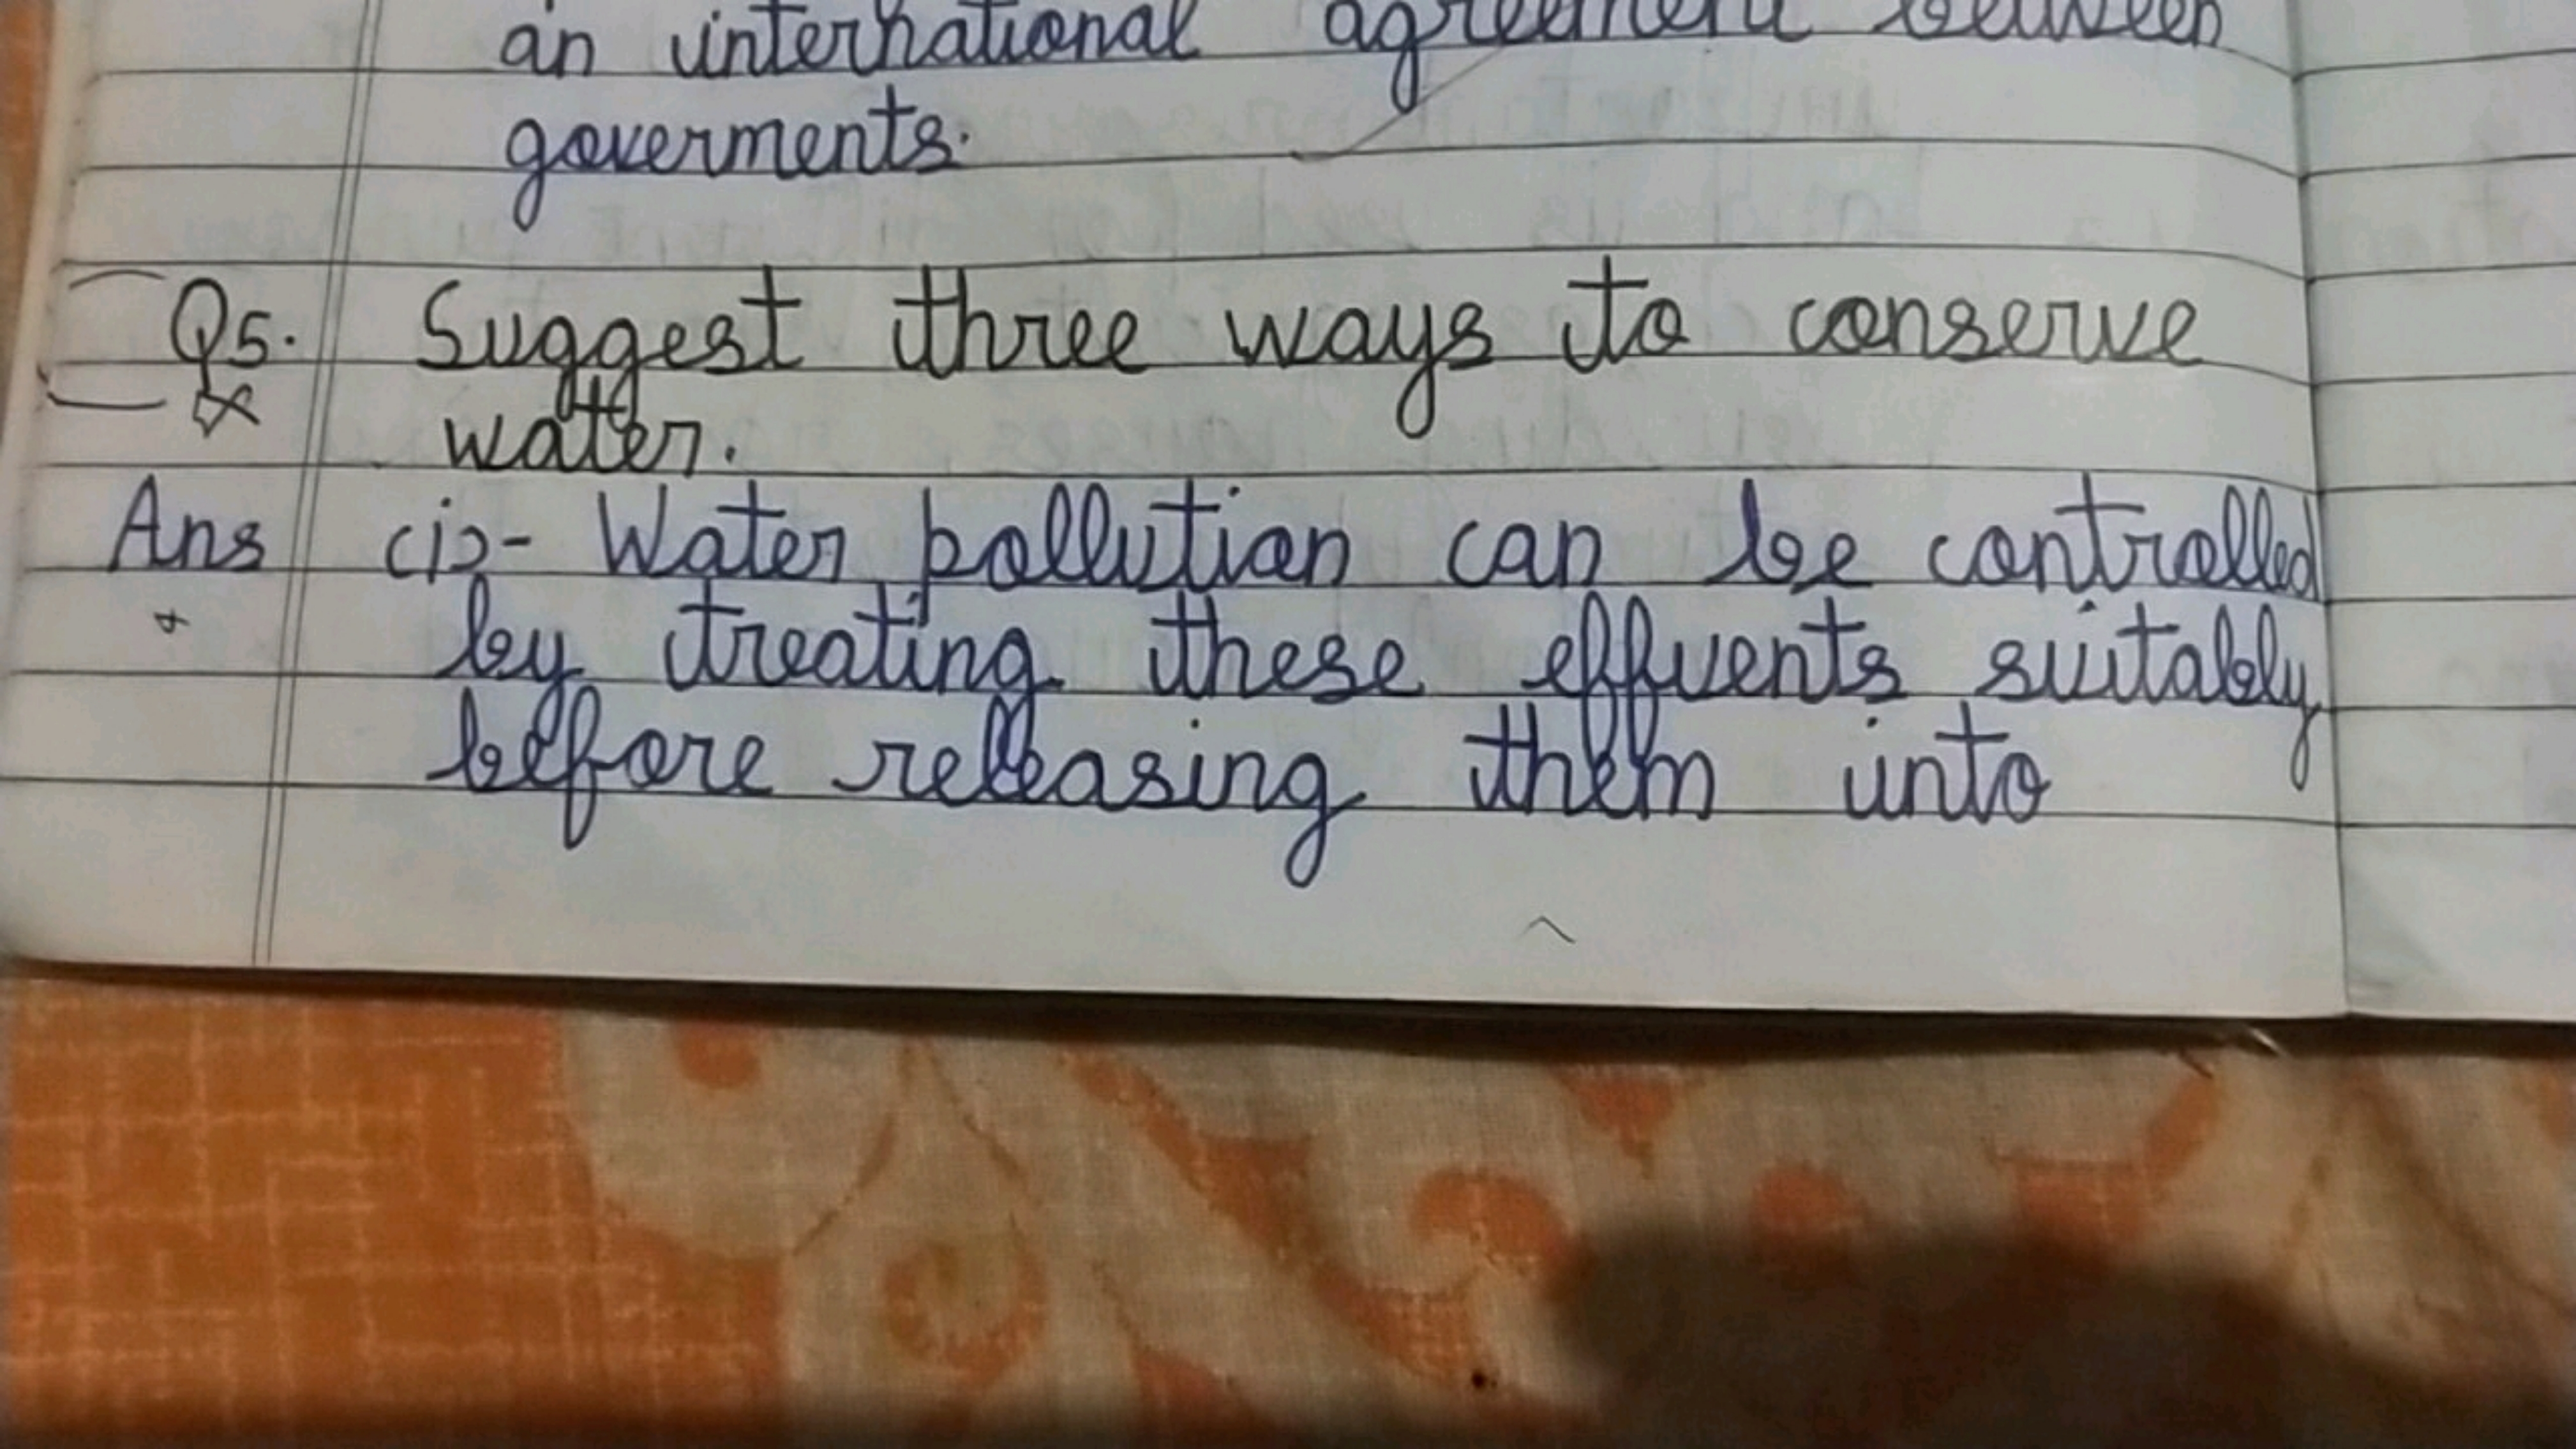 an international agreement between
goverments.
Q5. Suggest three ways to conserve
water.
Ans (i)- Water pollution can be controlled
by treating these effuents suitably
before releasing them into